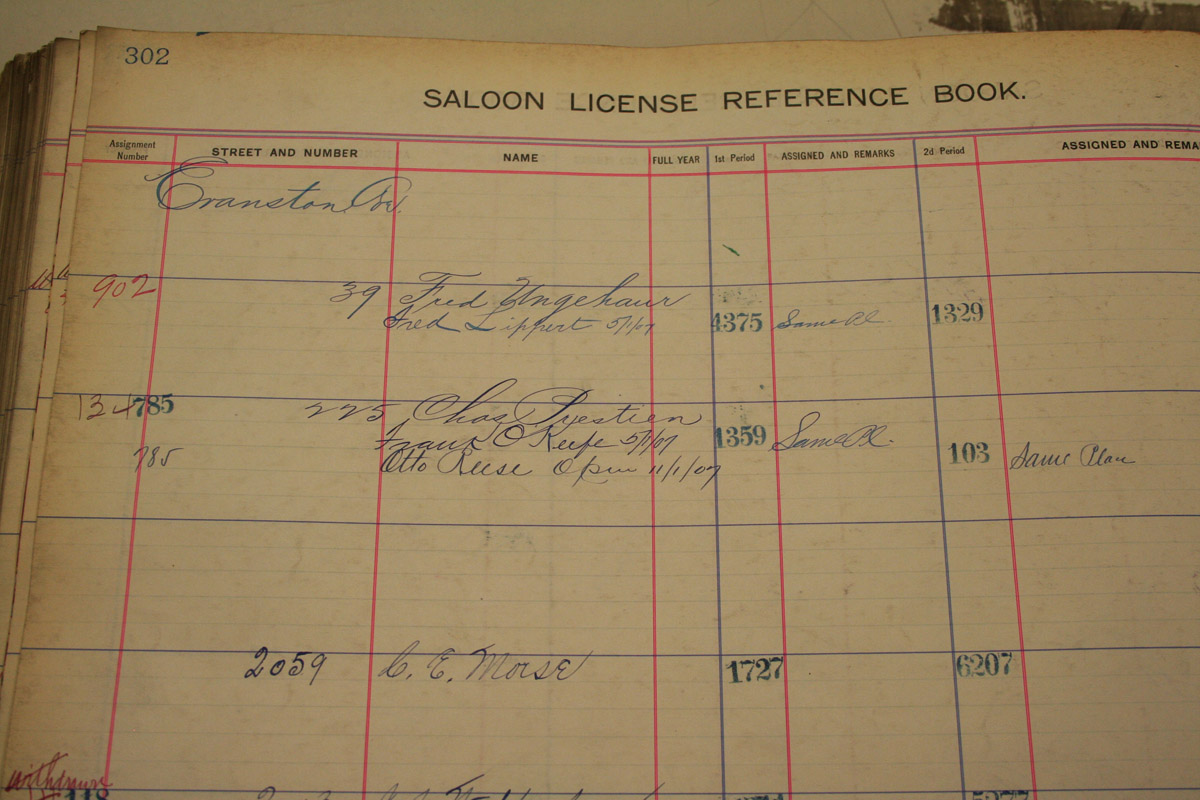 302
SALOON LICENSE REFERENCE BOOK.
Assignment Number STREET AND NUMBER NAME FULL YEAR 1st Period ASSIGNED AND REMARKS 2d Period ASSIGNED AND REMA
Evanston Av.
902 39 Fred Ungehaur
Fred Lippert 5/1/07 4375 Same Pl. 1329
134 785 225 Chas
Frank O'Keefe 5/1/07 1359 Same Pl.
785 Otto Reese Open 11/1/07 103 Same Place
2059 C. E. Morse 1727 6207
withdrawn
118